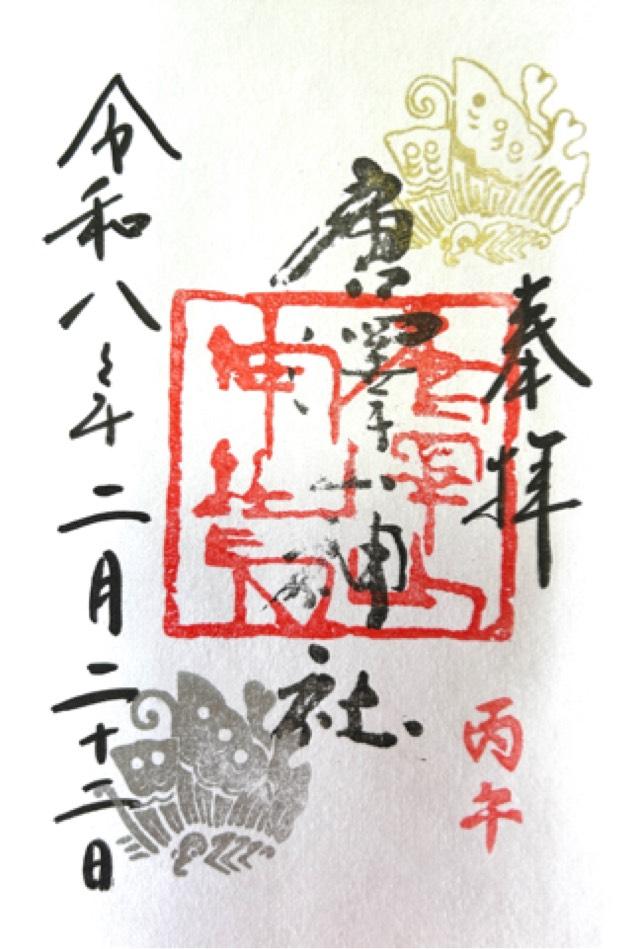 奉拝
丙午
唐澤山神社
令和八年二月二十二日